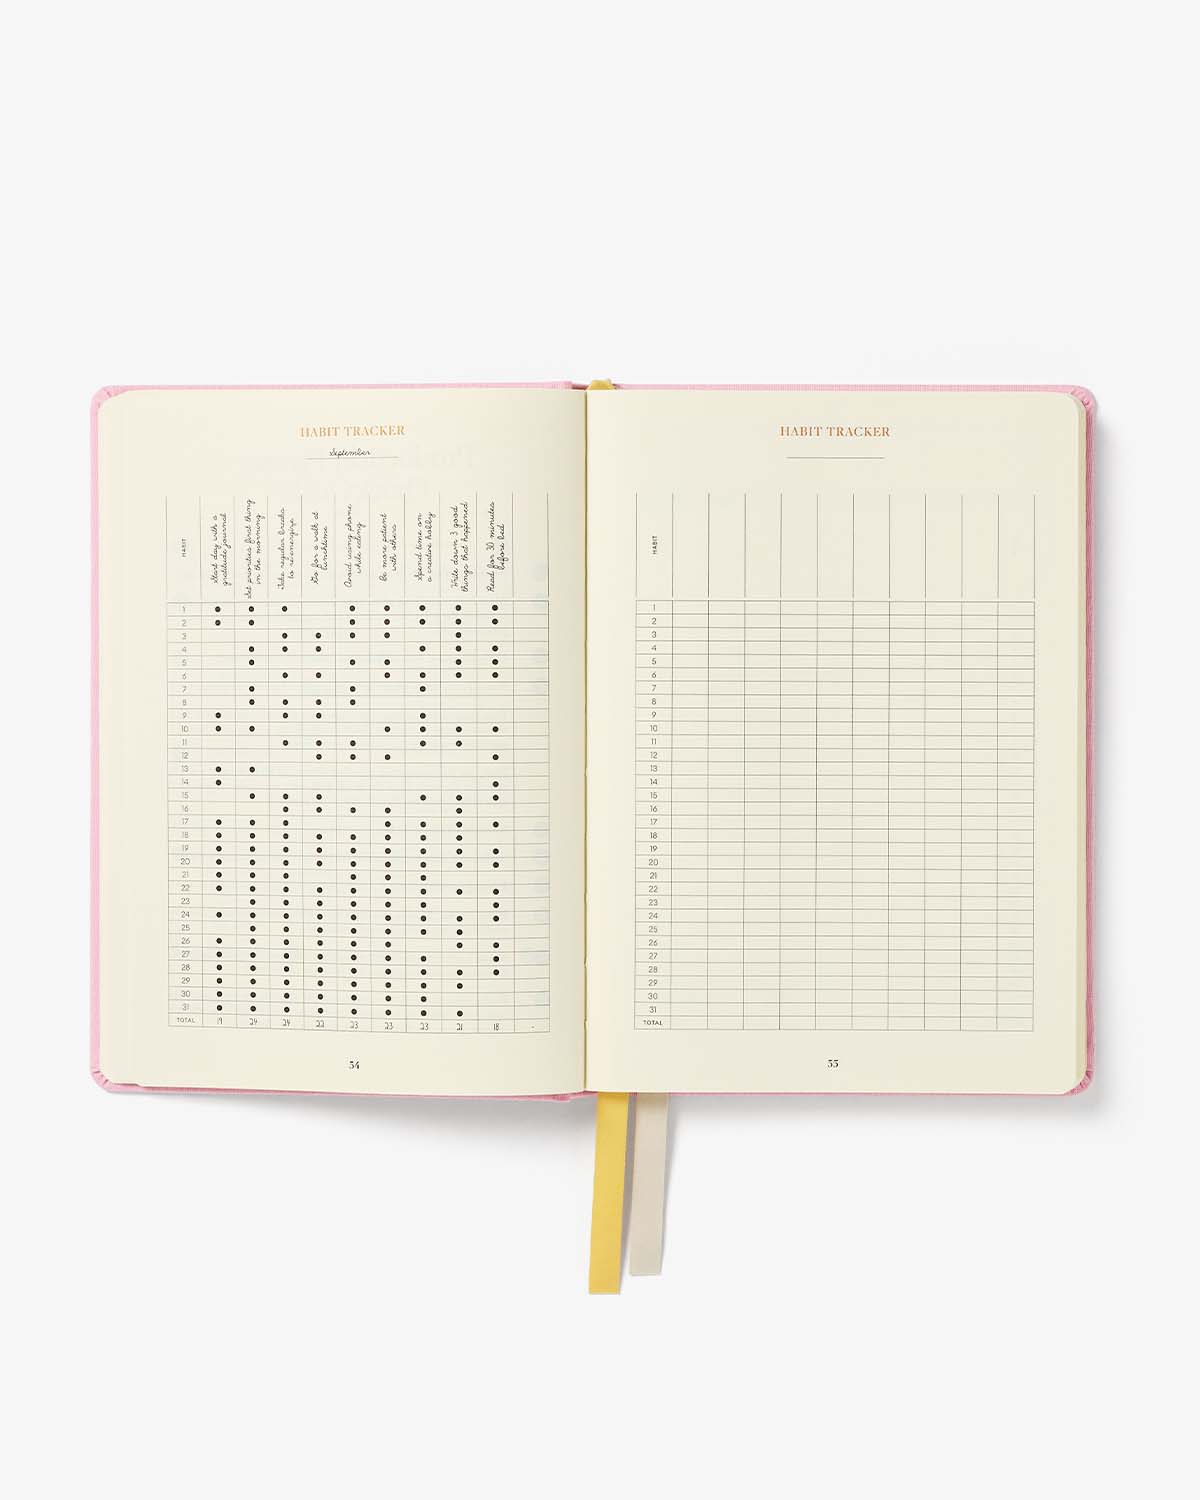 HABIT TRACKER
September
HABIT
Start day with a
gratitude journal
Set priorities first thing
in the morning
Take regular breaks
to re-energize
Go for a walk at
lunchtime
Avoid using phone
while eating
Be more patient
with others
Spend time on
a creative hobby
Write down 3 good
things that happened
Read for 30 minutes
before bed
1
2
3
4
5
6
7
8
9
10
11
12
13
14
15
16
17
18
19
20
21
22
23
24
25
26
27
28
29
30
31
TOTAL 19 24 24 22 23 23 23 21 18 -
34
HABIT TRACKER
HABIT
1
2
3
4
5
6
7
8
9
10
11
12
13
14
15
16
17
18
19
20
21
22
23
24
25
26
27
28
29
30
31
TOTAL